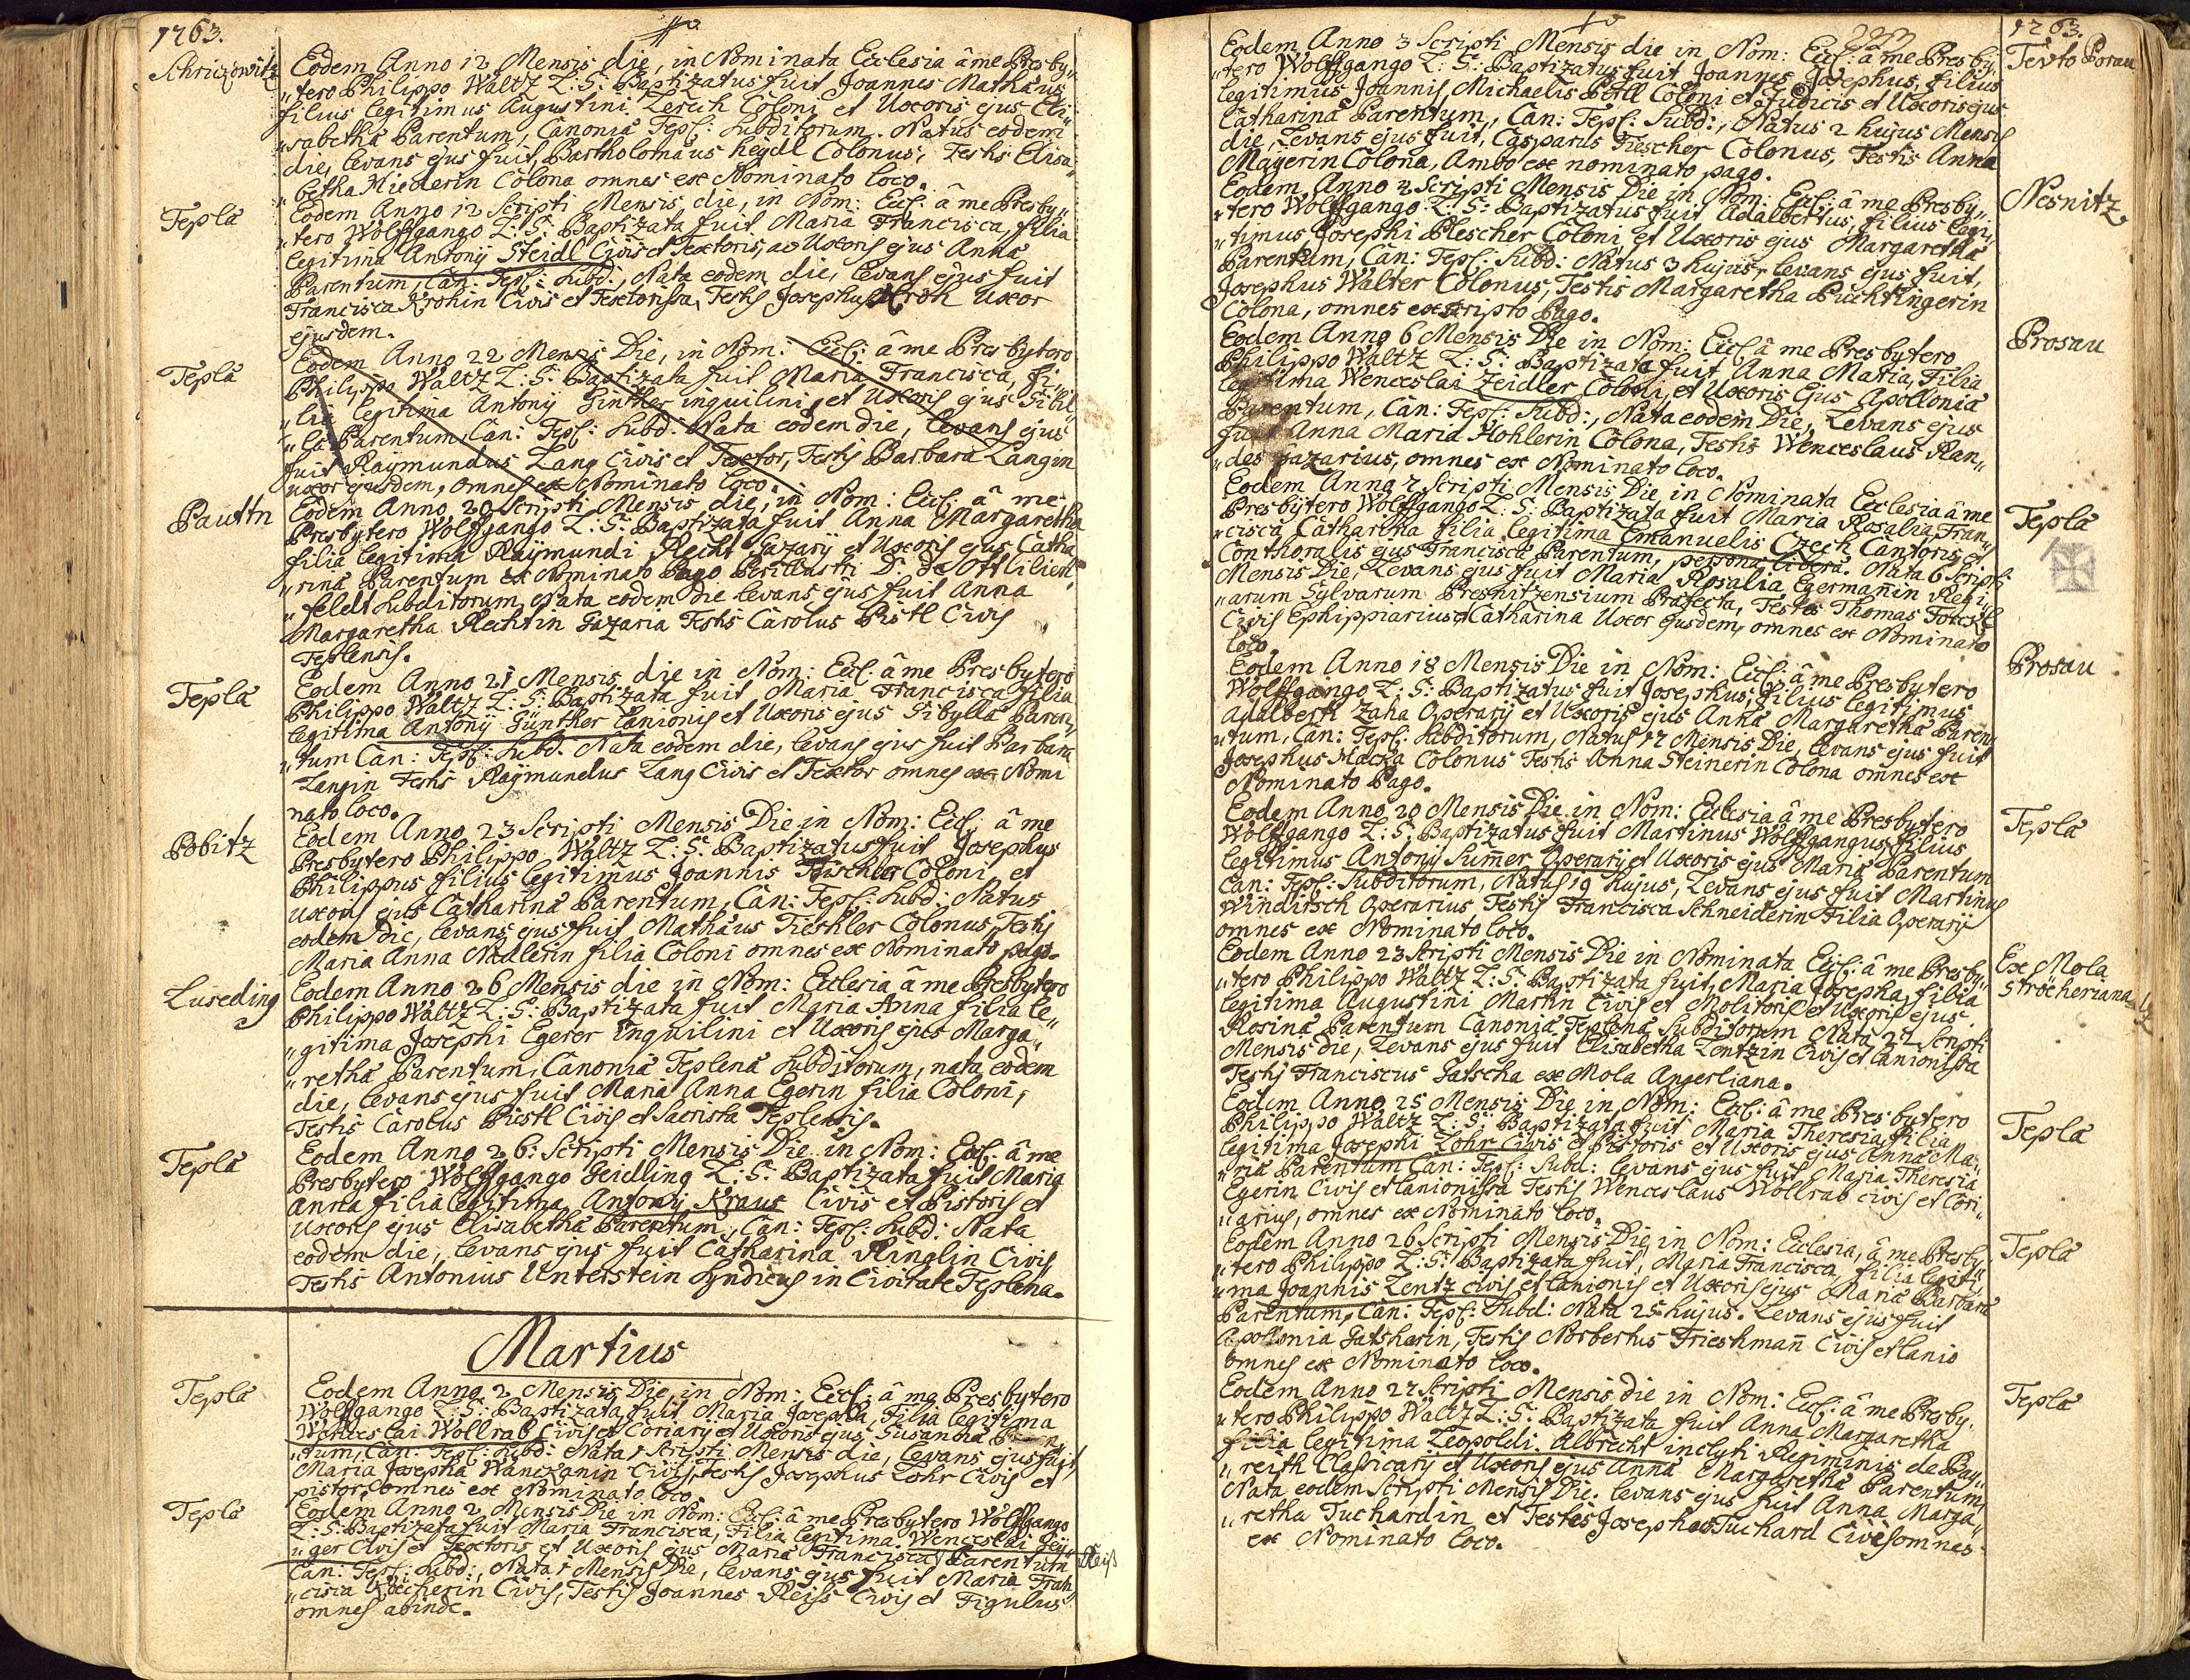 1763.
Schrizowitz
Eodem Anno 12 Mensis die, in Nominata Ecclesia â me Presby„
„tero Philippo Waltz L: S: Baptizatus fuit Joannes Mathæus
filius legitimus Augustini Zerich Coloni et Uxoris ejus Eli„
„sabetha Parentum, Canoniæ Tepl: Subditorum. Natus eodem
die, levans ejus fuit, Bartholomæus heydl Colonus, Testis Elisa„
„betha Miederin Colona omnes ex Nominato loco.
Tepla
Eodem Anno 12 Scripti Mensis die, in Nom: Eccl: â me Presby„
„tero Wolffgango L: S: Baptizata fuit Maria Francisca, filia
legitima Antonij Steidl Civis et Textoris, ac Uxoris ejus Anna
Parentum, Can: Tepl: Subd:, Nata eodem die, levans ejus fuit
Francisca Krohin Civis et Textorissa, Testis Josephus Kroh Uxor
ejusdem.
Tepla
Eodem Anno 22 Mensis Die, in Nom: Eccl: â me Presbytero
Philippo Waltz L: S: Baptizata fuit Maria Francisca, fi„
„lia legitima Antonij Günther inquilini et Uxoris ejus Sibil„
„la Parentum, Can: Tepl: Subd: Nata eodem die, levans ejus
fuit Raymundus Lang Civis et Textor, Testis Barbara Langin
uxor ejusdem, omnes ex Nominato loco.
Pauttn
Eodem Anno 20 Scripti Mensis die, in Nom: Eccl: â me
Presbytero Wolffgango L: S: Baptizata fuit Anna Margaretha
filia legitima Raymundi Recht Gazarij et Uxoris ejus Catha„
„rina Parentum ex Nominato Pago Perillustri D: De Ottlilien„
„feldt Subditorum, Nata eodem die levans ejus fuit Anna
Margaretha Rechtin Gazaria Testis Carolus Pistl Civis
Teplensis.
Tepla
Eodem Anno 21 Mensis die in Nom: Eccl: â me Presbytero
Philippo Waltz L: S: Baptizata fuit Maria Francisca filia
legitima Antonij Günther Lanionis et Uxoris ejus Sibylla Paren„
„tum Can: Tepl: Subd. Nata eodem die, levans ejus fuit Barbara
Langin Testis Raymundus Lang Civis et Textor omnes ex Nomi
nato loco.
Pobitz
Eodem Anno 23 Scripti Mensis Die in Nom: Eccl: â me
Presbytero Philippo Waltz L: S: Baptizatus fuit Josephus
Philippus filius legitimus Joannis Tischler Coloni et
Uxoris ejus Catharina Parentum, Can: Tepl: Subd: Natus
eodem die, levans ejus fuit Mathæus Tischler Colonus, Testis
Maria Anna Nadlerin filia Coloni omnes ex Nominato pago.
Luseding
Eodem Anno 26 Mensis die in Nom: Ecclesia â me Presbytero
Philippo Waltz L: S: Baptizata fuit Maria Anna filia le„
„gitima Josephi Egerer inquilini et Uxoris ejus Marga„
„retha Parentum, Canoniæ Teplenæ Subditorum, nata eodem
die, levans ejus fuit Maria Anna Egerin filia Coloni,
Testis Carolus Piestl Civis et Sacrista Teplensis.
Tepla
Eodem Anno 26: Scripti Mensis Die in Nom: Eccl: â me
Presbytero Wolffgango Seidling L: S: Baptizata fuit Maria
Anna filia legitima Antonij Kraus Civis et Pistoris et
Uxoris ejus Elisabetha Parentum, Can: Tepl: Subd: Nata
eodem die, levans ejus fuit Catharina Ringlin Civis
Testis Antonius Unterstein Syndicus in Civitate Teplena.
Martius
Tepla
Eodem Anno 2 Mensis Die in Nom: Eccl: â me Presbytero
Wolffgango L: S: Baptizata fuit Maria Josepha, Filia legitima
Wenceslai Wollrab Civis et Coriarij et Uxoris ejus Susanna Paren
„tum, Can: Tepl: Subd: Nata 1 Scripti Mensis die, levans ejus fuit
Maria Josepha Wanczanin Civis, Testis Josephus Lohr Civis et
pistor, omnes ex Nominato loco.
Tepla
Eodem Anno 2 Mensis Die in Nom: Eccl: â me Presbytero Wolffgango
L: S: Baptizata fuit Maria Francisca, Filia legitima Wenceslai
„ger Civis et Textoris et Uxoris ejus Maria Francisca Parentum
Can: Tepl: Subd:, Nata 1 Mensis Die, levans ejus fuit Maria Fran„
„cisca Civis, Testis Joannes Reiss Civis et Figulus
omnes abinde.
Reiß
1763.
Eodem Anno 3 Scripti Mensis die in Nom: Eccl: â me Presby„
„tero Wolffgango L: S: Baptizatus fuit Joannes Josephus, filius
legitimus Joannis Michaelis Coloni et Judicis et Uxoris ejus
Catharina Parentum, Can: Tepl: Subd:, Natus 2 hujus Mensis
die, Levans ejus fuit, Casparus Fiescher Colonus, Testis Anna
Mayerin Colona, Ambo ex nominato pago.
Nesnitz
Eodem Anno 4 Scripti Mensis Die in Nom: Eccl: â me Presby„
„tero Wolffgango L: S: Baptizatus fuit Adalbertus, filius legi„
„timus Josephi Plescher Coloni et Uxoris ejus Margaretha
Parentum, Can: Tepl: Subd: Natus 3 hujus, levans ejus fuit,
Josephus Walter Colonus, Testis Margaretha Puchtingerin
Colona, omnes ex scripto Pago.
Prosau
Eodem Anno 6 Mensis Die in Nom: Eccl: â me Presbytero
Philippo Waltz L: S: Baptizata fuit Anna Maria, Filia
legitima Wenceslai Zeidler Coloni, et Uxoris Ejus Apollonia
Parentum, Can: Tepl: Subd:, Nata eodem Die, Levans ejus
fuit Anna Maria Hohlerin Colona, Testis Wenceslaus Ran„
„des Gazarius, omnes ex Nominato loco.
Tepla
Eodem Anno 7 Scripti Mensis Die in Nominata Ecclesia â me
Presbytero Wolffgango L: S: Baptizata fuit Maria Rosalia, Fran„
„cisca Catharina filia legitima Emanuelis Czech Cantoris, et
Conthoralis ejus Francisca Parentum, persona libera. Nata 6 Scripti
Mensis Die, Levans ejus fuit Maria Rosalia Egermañin Regi„
„arum Sylvarum Presnitzensium Præfecta, Testes Thomas
Civis Ephippiarius et Catharina Uxor ejusdem, omnes ex Nominato
loco.
Prosau
Eodem Anno 18 Mensis Die in Nom: Eccl: â me Presbytero
Wolffgango L: S: Baptizatus fuit Josephus, filius legitimus
Adalberti Zaha Operarij et Uxoris ejus Anna Margaretha Paren„
„tum, Can: Tepl: Subditorum, Natus 17 Mensis Die, levans ejus fuit
Josephus Macka Colonus Testis Anna Steinerin Colona omnes ex
Nominato Pago.
Tepla
Eodem Anno 20 Mensis Die in Nom: Ecclesia â me Presbytero
Wolffgango L: S: Baptizatus fuit Martinus Wolffgangus filius
legitimus Antonij Sum̄er Operarij et Uxoris ejus Maria Parentum
Can: Tepl: Subditorum, Natus 19 hujus, Levans ejus fuit Martinus
Windirsch Operarius, Testis Francisca Schneiderin Filia Operarij
omnes ex Nominato loco.
Ex Mola
Strocheriana
Eodem Anno 23 Scripti Mensis Die in Nominata Eccl: â me Presby„
„tero Philippo Waltz L: S: Baptizata fuit, Maria Josepha, filia
legitima Augustini Martin Civis et Molitoris et Uxoris ejus
Rosina Parentum Canoniæ Teplenæ Subditorum Nata 22 Scripti
Mensis die, Levans ejus fuit Elisabetha Lentzin Civis et Lanionissa
Testis Franciscus Gatscha ex Mola Angerliana.
Tepla
Eodem Anno 25 Mensis Die in Nom: Eccl: â me Presbytero
Philippo Waltz L: S: Baptizata fuit Maria Theresia filia
legitima Josephi Lohr Civis et Pistoris et Uxoris ejus Anna Ma„
„ria Parentum Can: Tepl: Subd: levans ejus fuit Maria Theresia
Egerin Civis et Lanionissa Testis Wenceslaus Wollrab civis et Cori„
„arius, omnes ex Nominato loco.
Tepla
Eodem Anno 26 Scripti Mensis Die in Nom: Ecclesia, â me Presby„
„tero Philippo L: S: Baptizata fuit, Maria Francisca, filia legiti„
„ma Joannis Lentz civis et lanionis et Uxoris ejus Maria Barbara
Parentum, Can: Tepl: Subd: Nata 25 hujus. Levans ejus fuit
Apollonia Gatsharin, Testis Norbertus Frieshmañ Civis et lanio
omnes ex Nominato loco.
Tepla
Eodem Anno 27 Scripti Mensis die in Nom: Eccl: â me Presby„
„tero Philippo Waltz L: S: Baptizata fuit Anna Margaretha
filia legitima Leopoldi Albrecht inclyti Regiminis de Bay„
„reith Classicarij et Uxoris ejus Anna Margaretha Parentum,
Nata eodem Scripti Mensis Die. levans ejus fuit Anna Marga„
„retha Tuchardin et Testes Josephus Tuchard Cives omnes
ex Nominato loco.